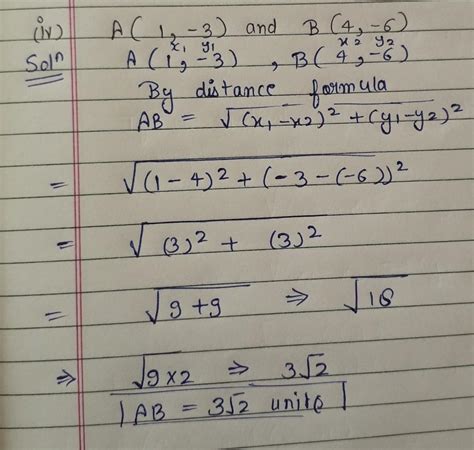 (iv) A(1,-3) and B(4,-6)
x₁ y₁ x₂ y₂
Solⁿ A(1,-3) , B(4,-6)
By distance formula
AB = √(x₁-x2)² + (y₁-y2)²
= √(1-4)² + (-3-(-6))²
= √(3)² + (3)²
= √9+9 ⇒ √18
⇒ √9×2 ⇒ 3√2
|AB = 3√2 units|